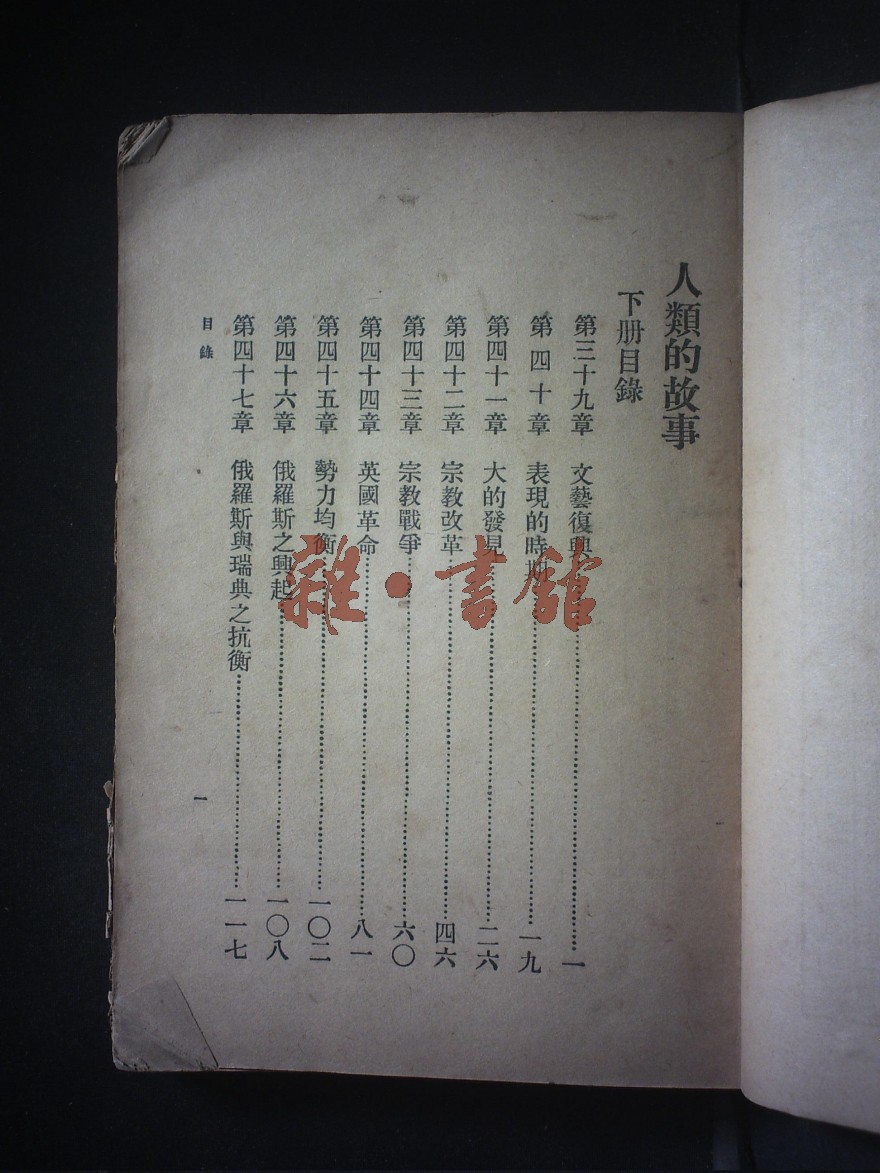 人類的故事
下册目錄
第三十九章 文藝復興……一
第四十章 表現的時期……一九
第四十一章 大的發見……二六
第四十二章 宗教改革……四六
第四十三章 宗教戰爭……六〇
第四十四章 英國革命……八一
第四十五章 勢力均衡……一〇二
第四十六章 俄羅斯之興起……一〇八
第四十七章 俄羅斯與瑞典之抗衡……一一七
目錄
一
雜·書館